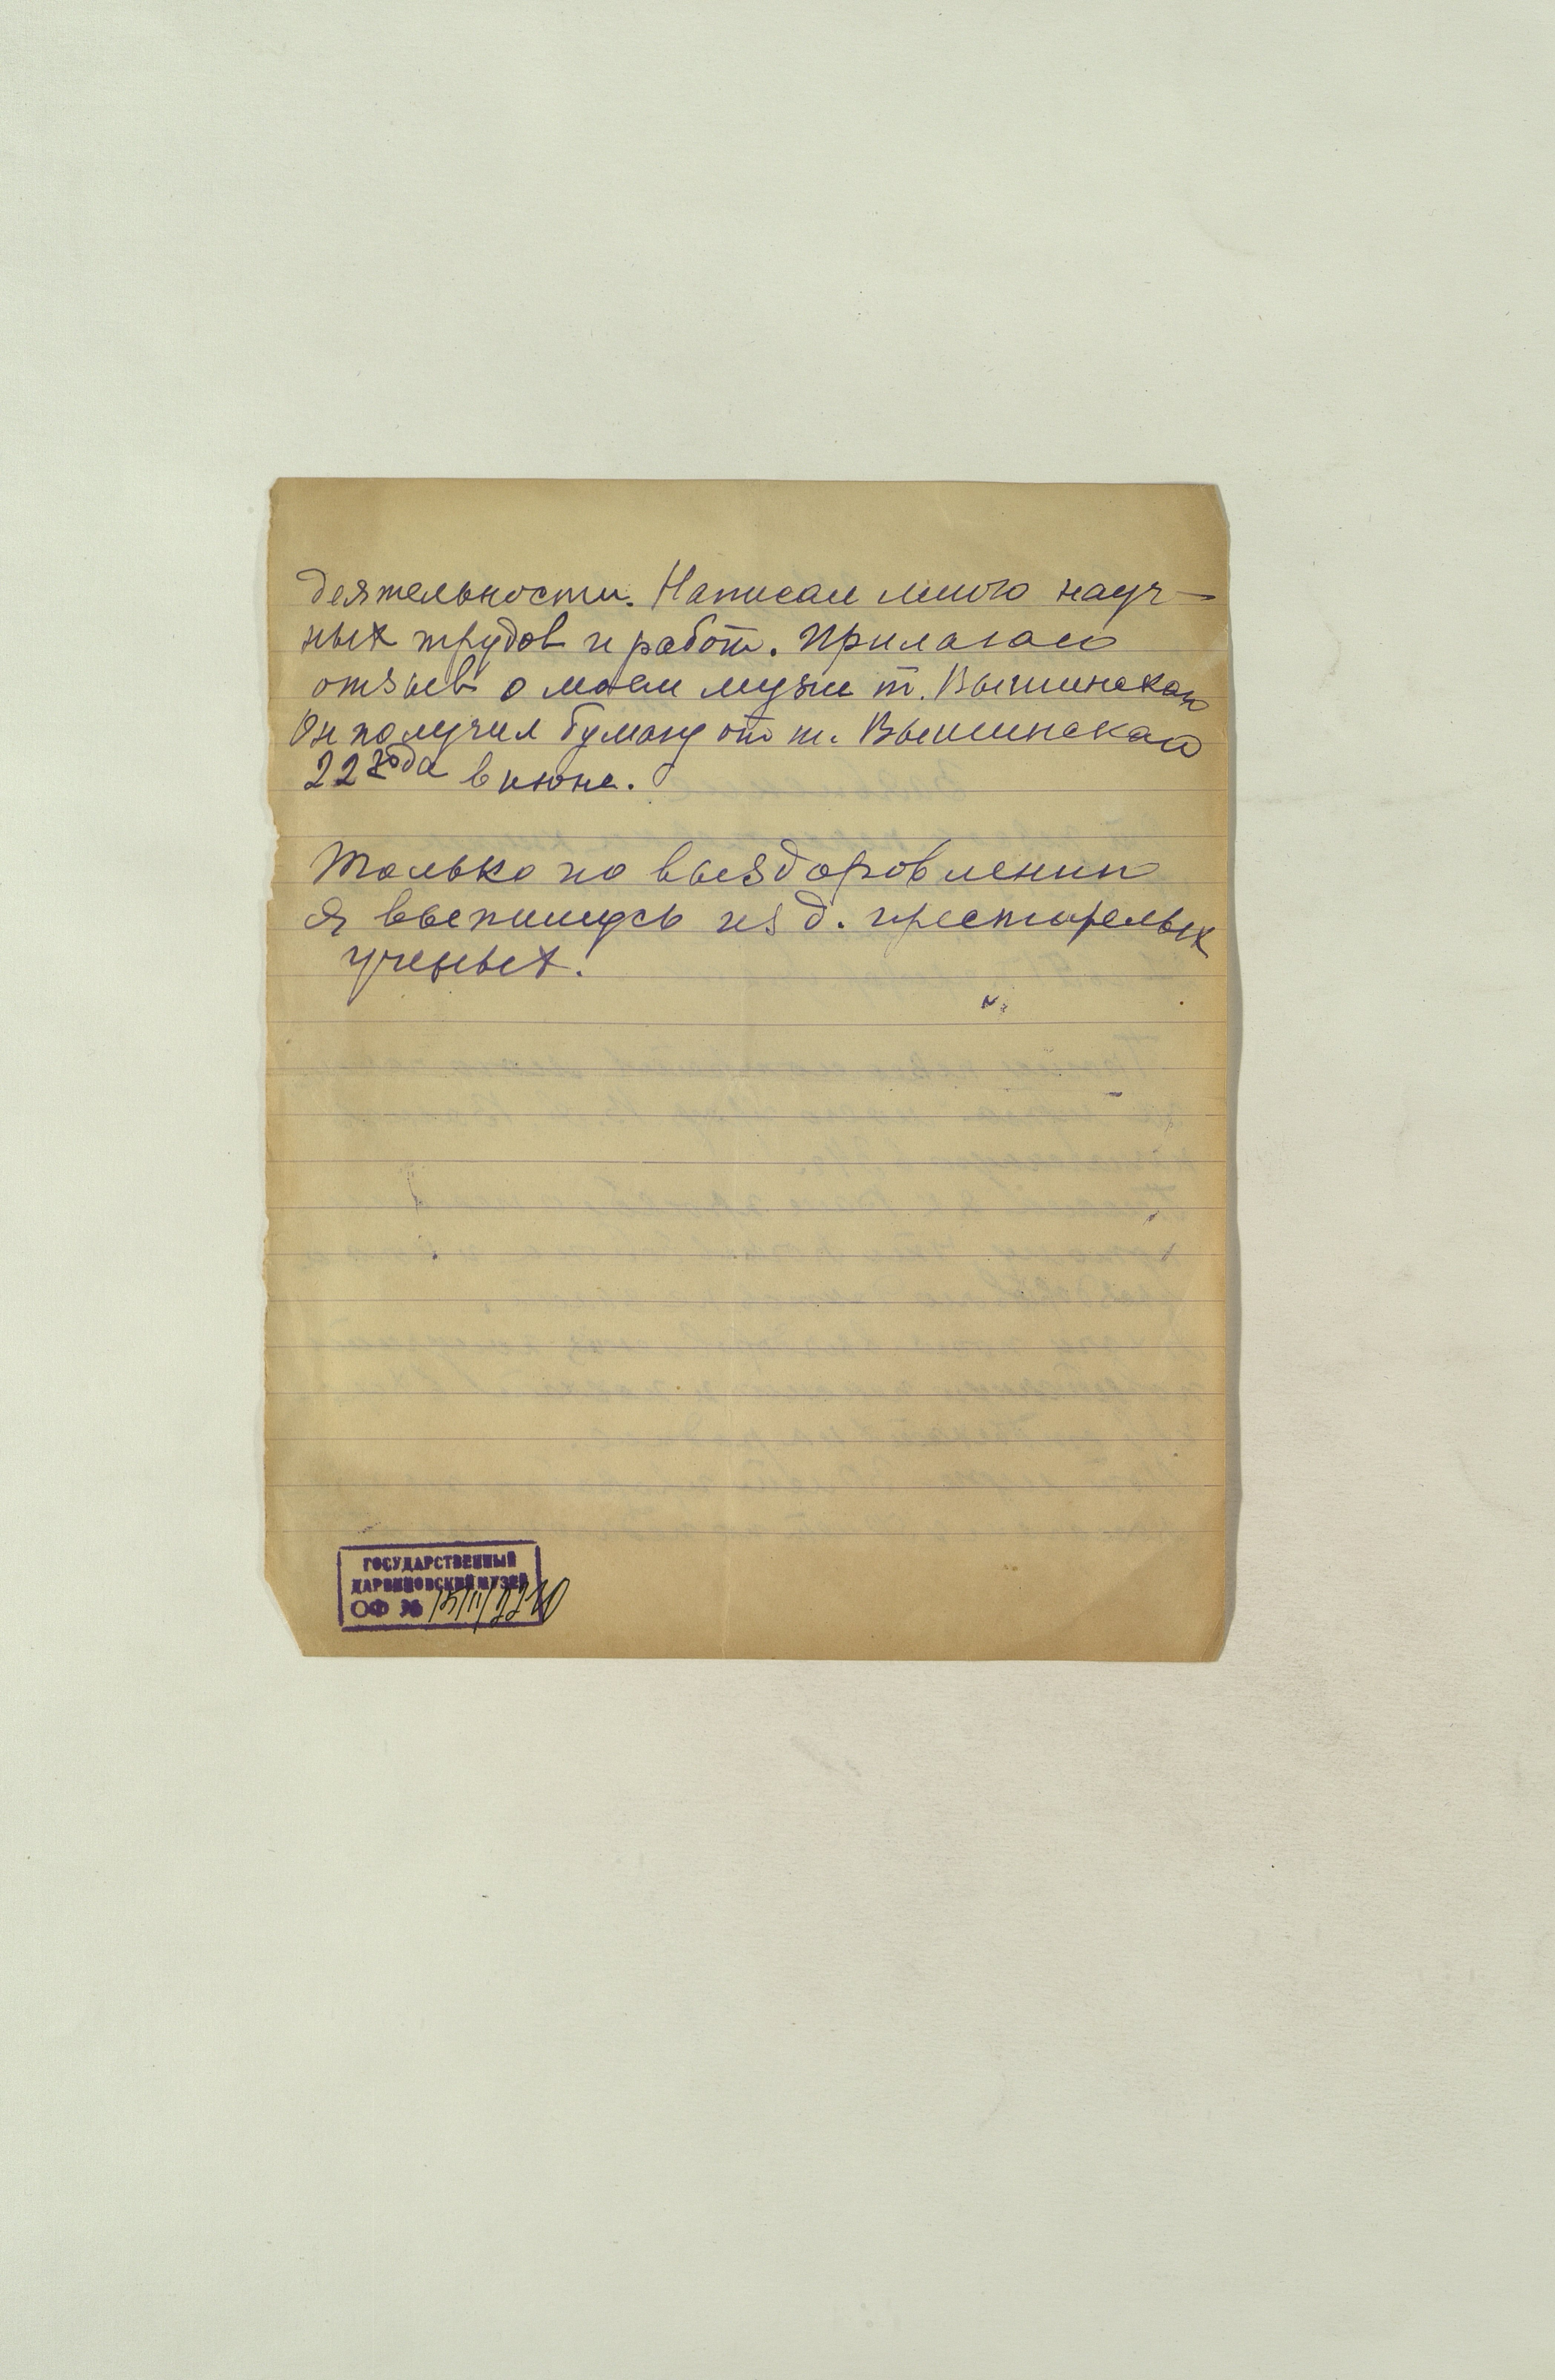 деятельности. Написал много науч-
ных трудов и работ. Прилагаю
отзыв о моем музее т. Вышинского
Он получил бумагу от т. Вышинского
22 года в июне.
Только по выздоровлении
я выпишусь из д. престарелых
ученых.
ГОСУДАРСТВЕННЫЙ
ДАРВИНОВСКИЙ МУЗЕЙ
ОФ №